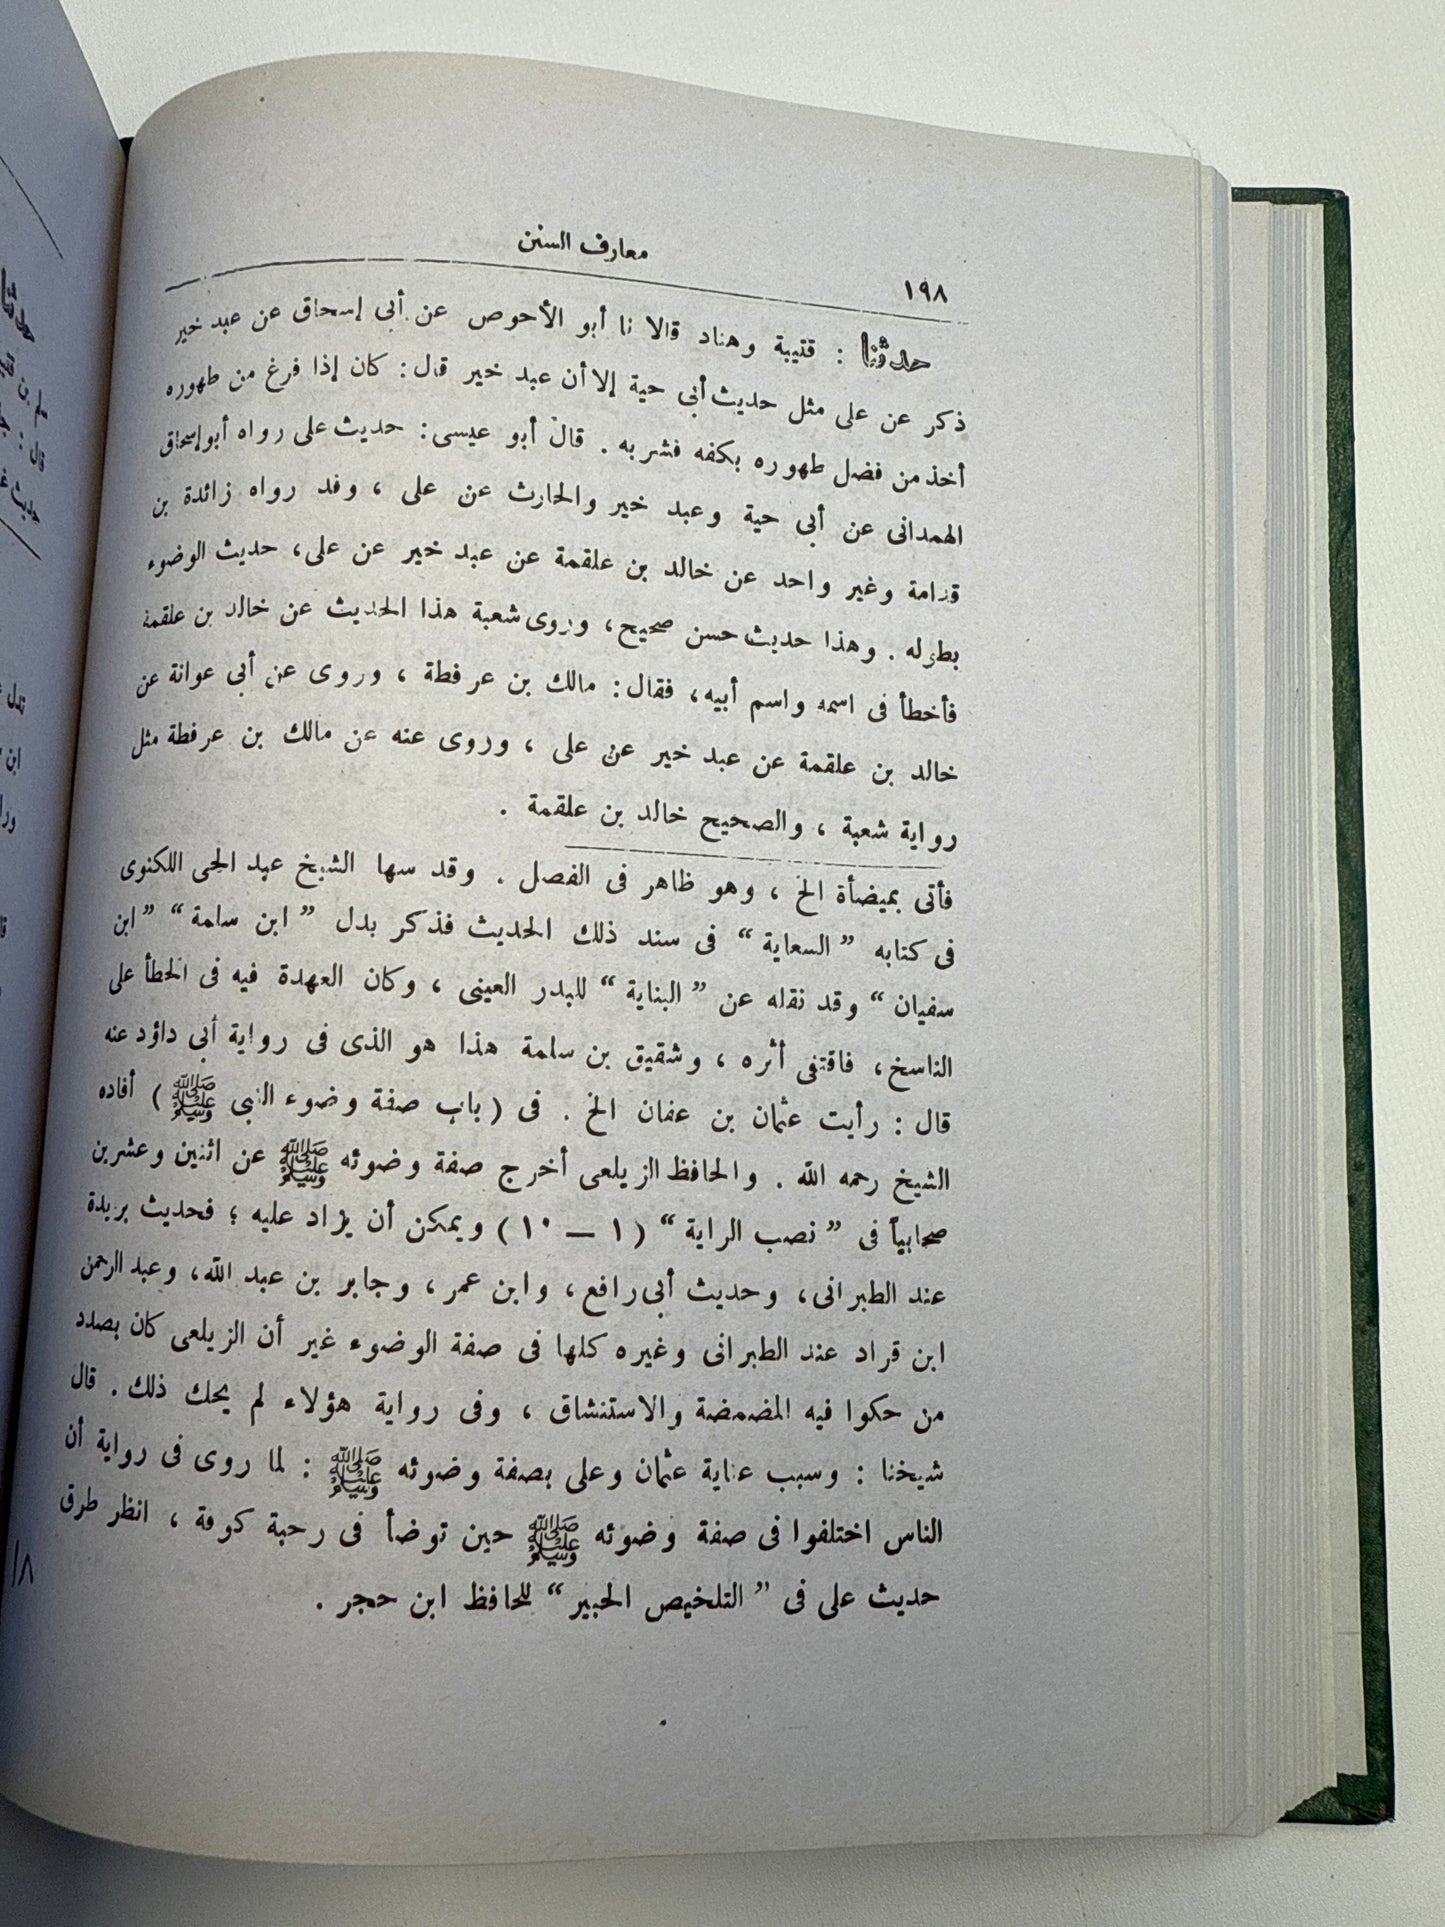 معارف السنن
١٩٨
حدثنا : قتيبة وهناد قالا نا أبو الأحوص عن أبى إسحاق عن عبد خير
ذكر عن على مثل حديث أبى حية إلا أن عبد خير قال : كان إذا فرغ من طهوره
أخذ من فضل طهوره بكفه فشربه . قال أبو عيسى : حديث على رواه أبو إسحاق
الهمدانى عن أبى حية وعبد خير والحارث عن على ، وقد رواه زائدة بن
قدامة وغير واحد عن خالد بن علقمة عن عبد خير عن على ، حديث الوضوء
بطوله . وهذا حديث حسن صحيح ، وروى شعبة هذا الحديث عن خالد بن علقمة
فأخطأ فى اسمه واسم أبيه ، فقال : مالك بن عرفطة ، وروى عن أبى عوانة عن
خالد بن علقمة عن عبد خير عن على ، وروى عنه عن مالك بن عرفطة مثل
رواية شعبة ، والصحيح خالد بن علقمة .
فأتى بميضأة الخ ، وهو ظاهر فى الفصل . وقد سها الشيخ عبد الحى اللكنوى
فى كتابه ” السعاية “ فى سند ذلك الحديث فذكر بدل ” ابن سلمة “ ” ابن
سفيان “ وقد نقله عن ” البناية “ للبدر العينى ، وكان العهدة فيه فى الخطأ على
الناسخ ، فاقتفى أثره ، وشقيق بن سلمة هذا هو الذى فى رواية أبى داؤد عنه
قال : رأيت عثمان بن عفان الخ . فى ( باب صفة وضوء النبى ﷺ ) أفاده
الشيخ رحمه الله . والحافظ الزيلعى أخرج صفة وضوئه ﷺ عن اثنين وعشرين
صحابياً فى ” نصب الراية “ ( ١ — ١٠ ) ويمكن أن يزاد عليه ؛ فحديث بريدة
عند الطبرانى ، وحديث أبى رافع ، وابن عمر ، وجابر بن عبد الله ، وعبد الرحمن
ابن قراد عند الطبرانى وغيره كلها فى صفة الوضوء غير أن الزيلعى كان بصدد
من حكوا فيه المضمضة والاستنشاق ، وفى رواية هؤلاء لم يحك ذلك . قال
شيخنا : وسبب عناية عثمان وعلى بصفة وضوئه ﷺ : لما روى فى رواية أن
الناس اختلفوا فى صفة وضوئه ﷺ حين توضأ فى رحبة كوفة ، انظر طرق
حديث على فى ” التلخيص الحبير “ للحافظ ابن حجر .